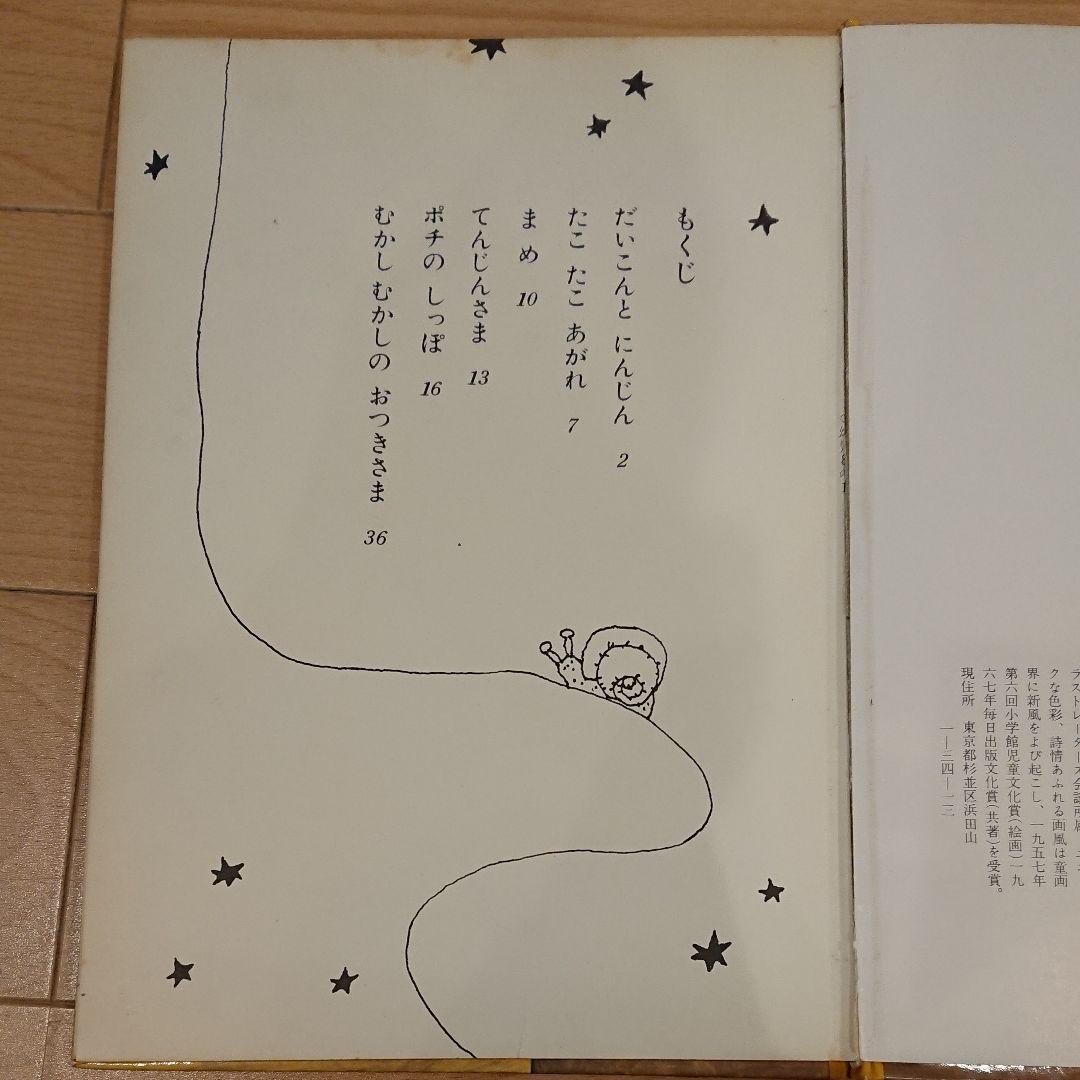 もくじ
だいこんと にんじん 2
たこ たこ あがれ 7
まめ 10
てんじんさま 13
ポチの しっぽ 16
むかし むかしの おつきさま 36
クな色彩、詩情あふれる画風は童画
界に新風をよび起こし、一九五七年
第六回小学館児童文化賞(絵画)一九
六七年毎日出版文化賞(共著)を受賞。
現住所 東京都杉並区浜田山